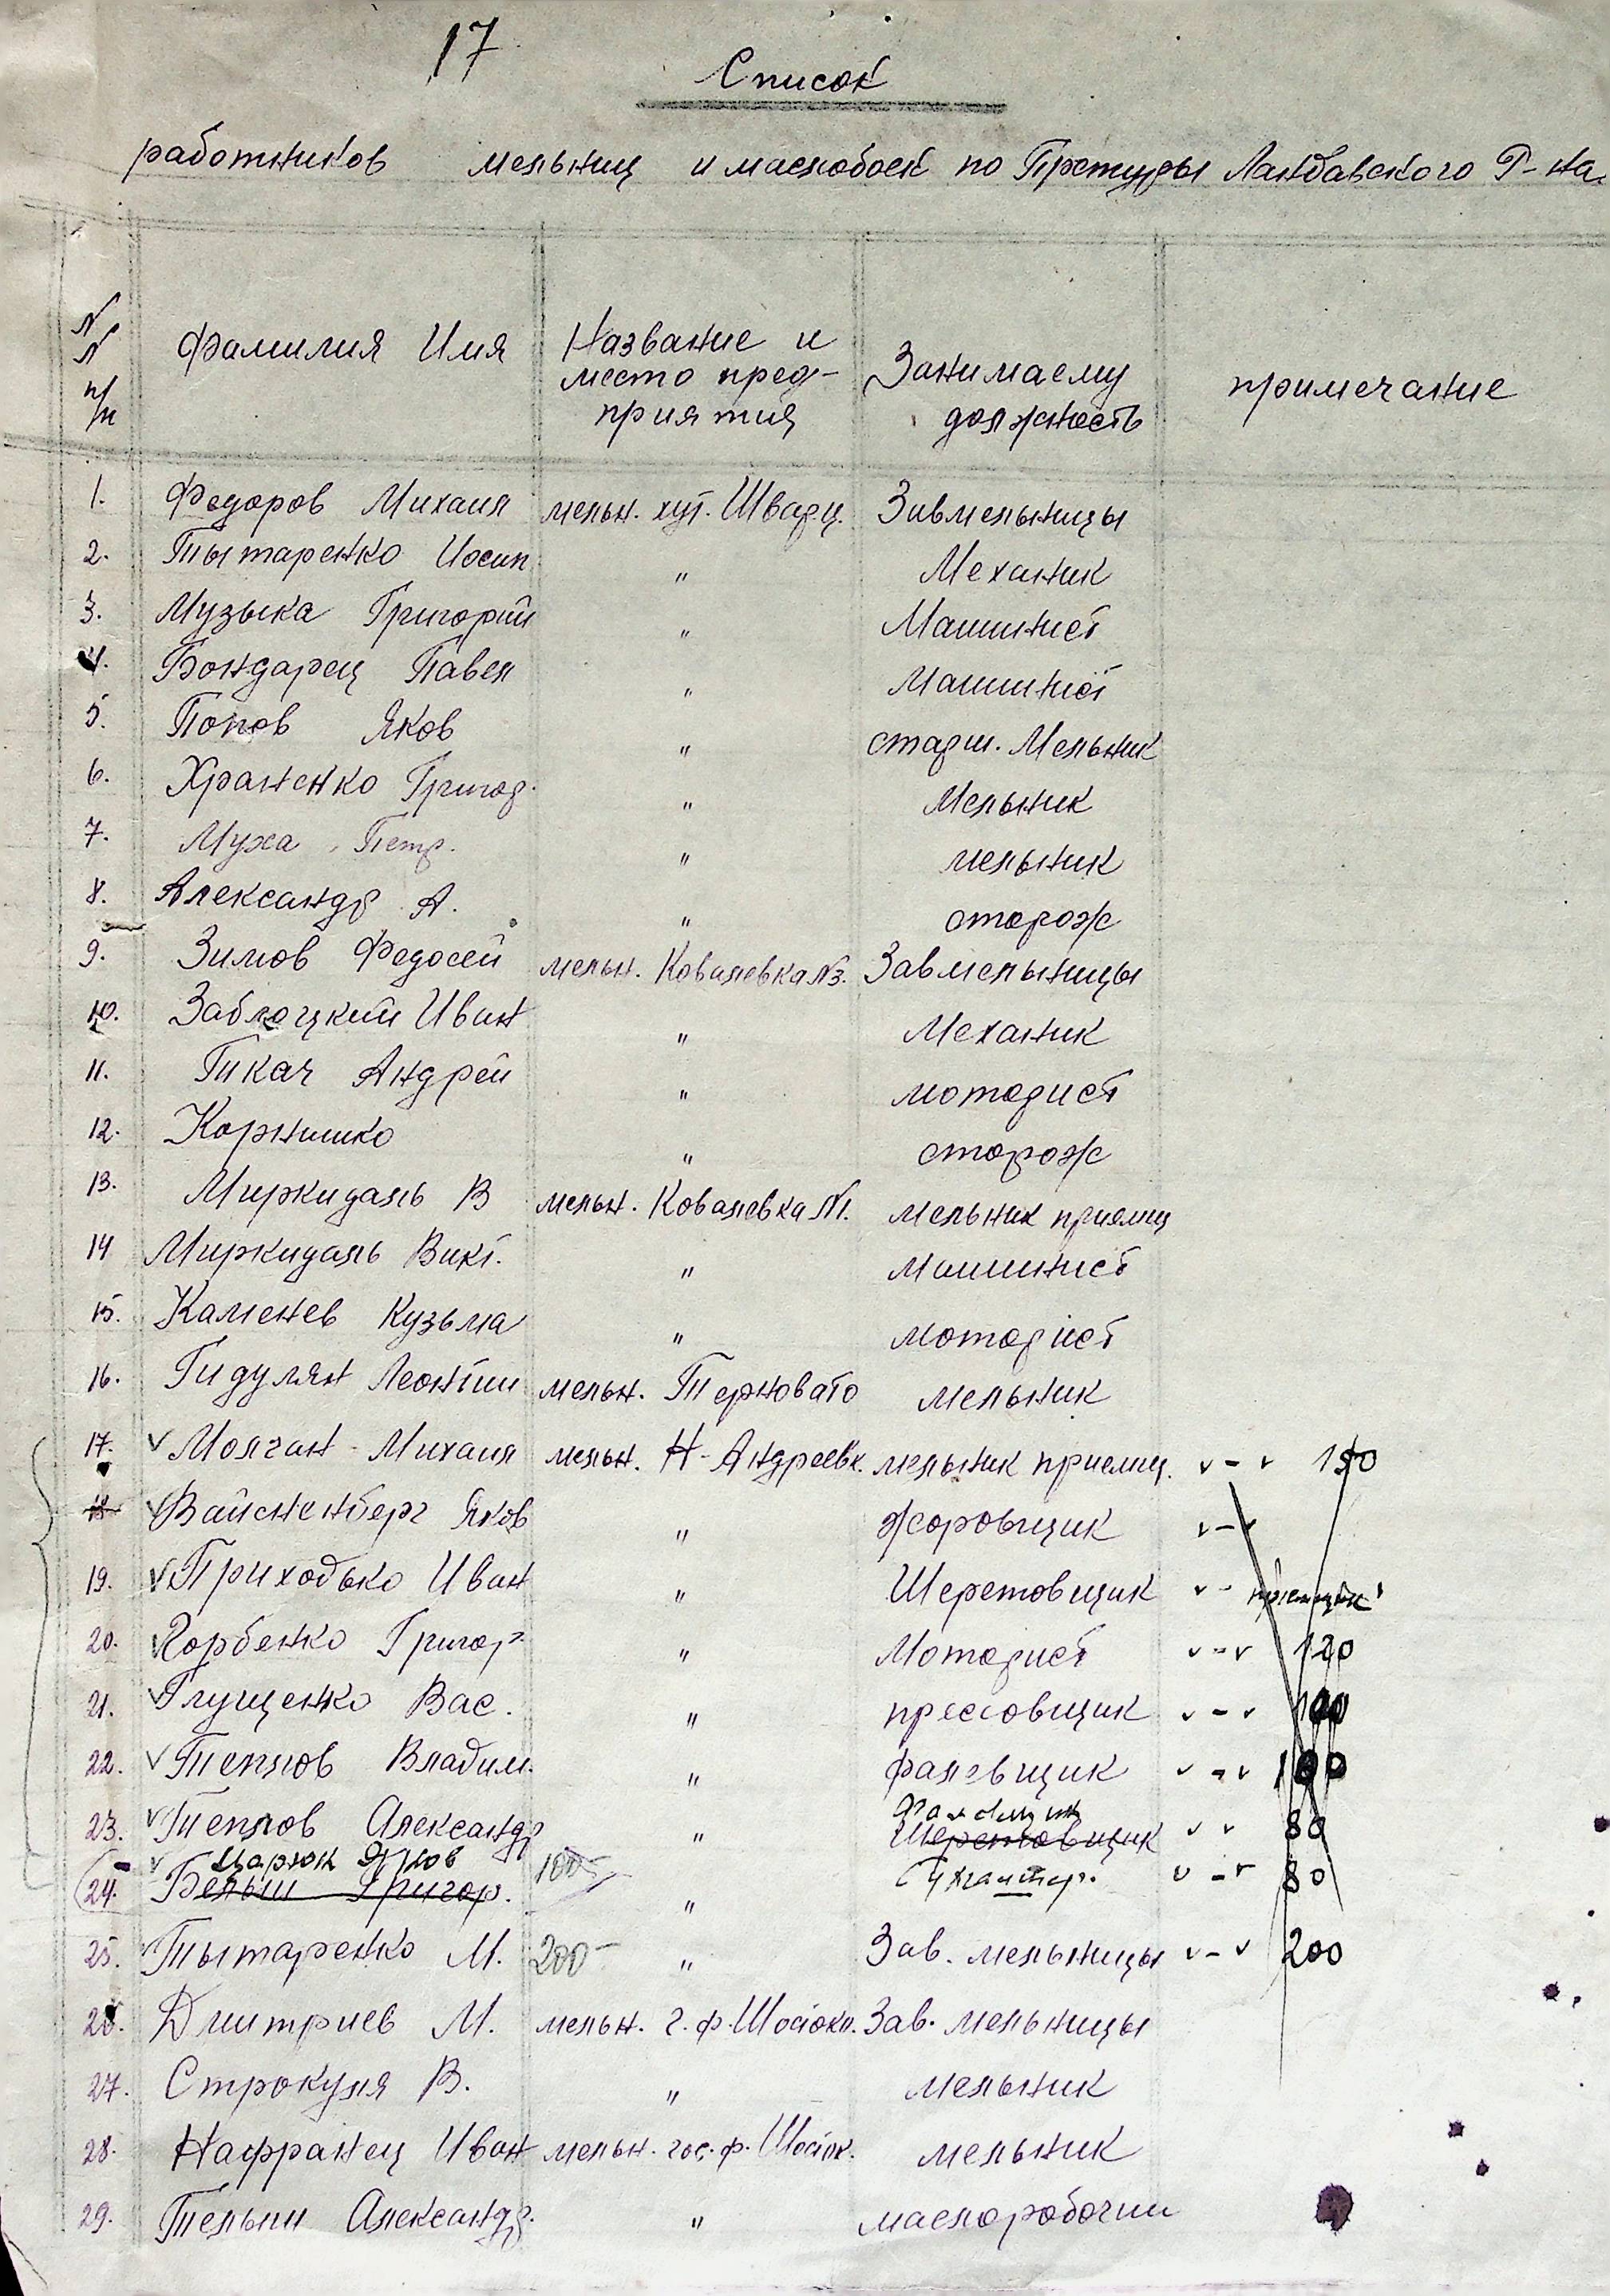 17
Список
работников мельниц и маслобоек по Претуры Ландавского Р-на.
N N п/п Фамилия Имя Название и место пред- приятия Занимаему должность примечание
1. Федоров Михаил мельн. хут. Шварц. Завмельницы
2. Тытаренко Иосип " Механик
3. Музыка Григорий " Машинист
4. Бондарец Павел " Машинист
5. Попов Яков " старш. Мельник
6. Храненко Григор. " Мельник
7. Муха Петр. " мельник
8. Александр А. " сторож
9. Зимов Федосей мельн. Ковалевка N3. Завмельницы
10. Заблоцкий Иван " Механик
11. Ткач Андрей " моторист
12. Корнишко " сторож
13. Миркидаль В мельн. Ковалевка N1. мельник приемщ
14 Миркидаль Викт. " Машинист
15. Каменев Кузьма " моторист
16. Гидулян Леонтий мельн. Терновато мельник
17. v Молчан - Михаил мельн. Н-Андреевк. мельник приемщ. v - v 150
18 v Вайсненберг Яков " жоровщик v - v
19. v Приходько Иван " Шеретовщик v -
20. v Горбенко Григор. " Моторист v - v 120
21. v Глущенко Вас. " прессовщик v - v 100
22. v Теплов Владим. " фаловщик v - v 100
23. v Теплов Александр " Шеретовщик v v 80
24. v Яков Белый Григор. 100- " Бухгалтер. v - v 80
25. v Тытаренко М. 200- " Зав. мельницы v - v 200
26. Дмитриев М. мельн. г. ф. Шостокп. Зав. мельницы
27. Строкуля В. " мельник
28. Нафранец Иван мельн. гос. ф. Шосток. мельник
29. Тельпи Александр. " маслоробочии